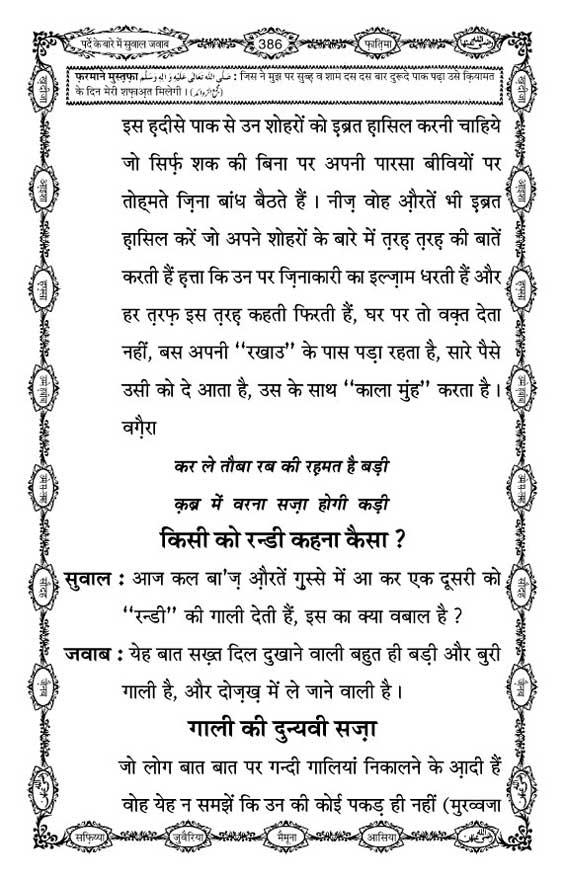 पर्दे के बारे में सुवाल जवाब
386
फ़ातिमा
फ़रमाने मुस्तफ़ा صَلَّى اللهُ تَعَالٰى عَلَيْهِ وَاٰلِهٖ وَسَلَّم : जिस ने मुझ पर सुब्ह़ व शाम दस दस बार दुरूदे पाक पढ़ा उसे क़ियामत
के दिन मेरी शफ़ाअ़त मिलेगी ।
इस ह़दीसे पाक से उन शोहरों को इ़ब्रत ह़ासिल करनी चाहिये
जो सिर्फ़ शक की बिना पर अपनी पारसा बीवियों पर
तोहमते ज़िना बांध बैठते हैं । नीज़ वोह औ़रतें भी इ़ब्रत
ह़ासिल करें जो अपने शोहरों के बारे में त़रह़ त़रह़ की बातें
करती हैं ह़त्ता कि उन पर ज़िनाकारी का इल्ज़ाम धरती हैं और
हर त़रफ़ इस त़रह़ कहती फिरती हैं, घर पर तो वक़्त देता
नहीं, बस अपनी ‘‘रखाउ’’ के पास पड़ा रहता है, सारे पैसे
उसी को दे आता है, उस के साथ ‘‘काला मुंह’’ करता है ।
वग़ैरा
कर ले तौबा रब की रह़मत है बड़ी
क़ब्र में वरना सज़ा होगी कड़ी
किसी को रन्डी कहना कैसा ?
सुवाल : आज कल बा'ज़ औ़रतें गुस्से में आ कर एक दूसरी को
‘‘रन्डी’’ की गाली देती हैं, इस का क्या वबाल है ?
जवाब : येह बात सख़्त दिल दुखाने वाली बहुत ही बड़ी और बुरी
गाली है, और दोज़ख़ में ले जाने वाली है ।
गाली की दुन्यवी सज़ा
जो लोग बात बात पर गन्दी गालियां निकालने के आ़दी हैं
वोह येह न समझें कि उन की कोई पकड़ ही नहीं (मुरव्वजा
सफ़िय्या
जुवैरिया
मैमूना
आसिया